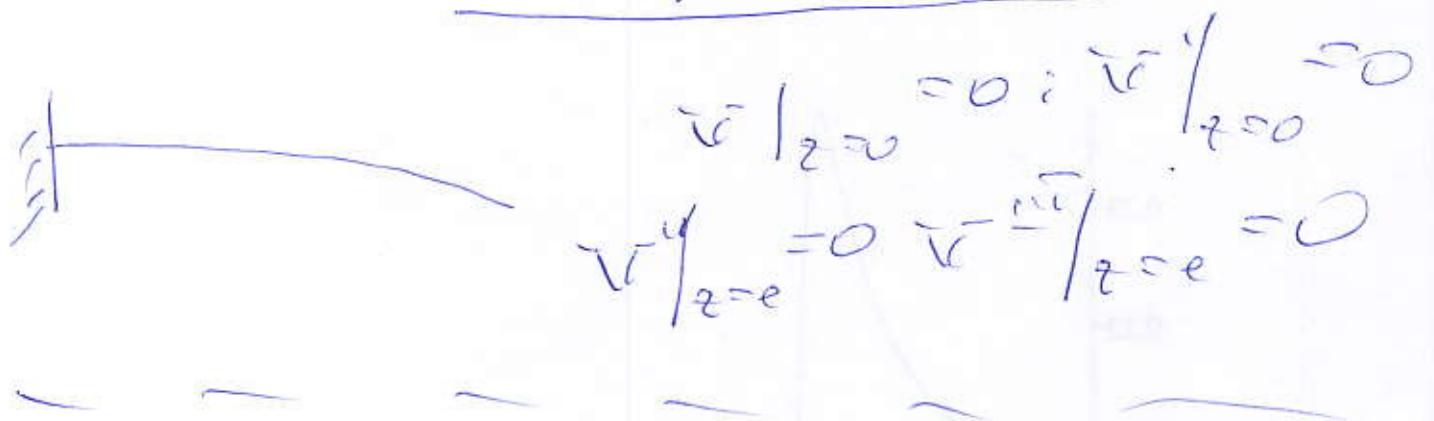 v|z=0 = 0; v'|z=0 = 0
v''|z=l = 0 v'''|z=l = 0